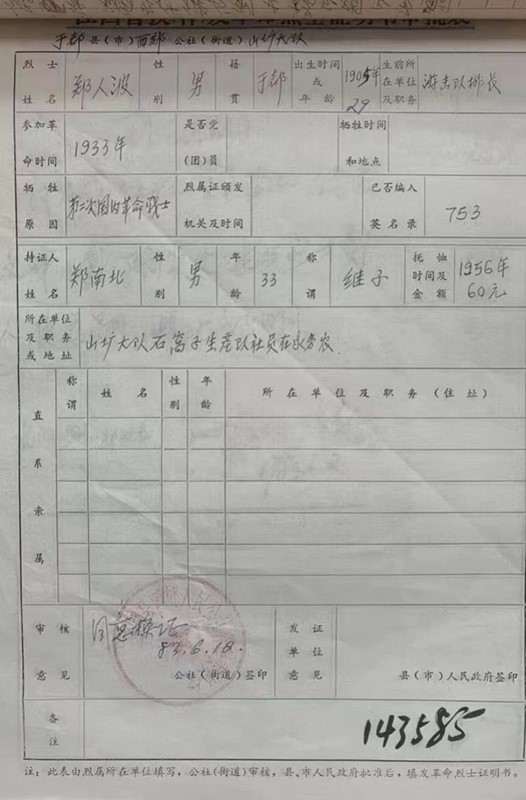 于都县（市）西郊公社（街道）山圹大队
烈士姓名 郑人波 性别 男 籍贯 于都 出生时间或年龄 1905年 29 生前所在单位及职务 游击队排长
参加革命时间 1933年 是否党(团)员 牺牲时间和地点
牺牲原因 第二次国内革命战士 烈属证颁发机关及时间 已否编入英名录 753
持证人姓名 郑南北 性别 男 年龄 33 称谓 继子 抚恤时间及金额 1956年 60元
所在单位及职务或地址 山圹大队石窩子生产队社员在家务农.
直系亲属 称谓 姓名 性别 年龄 所在单位及职务（住址）
审核意见 同意换证 83.6.18. 公社（街道）签印 发证单位意见 县（市）人民政府签印
备注 143585
注：此表由烈属所在单位填写，公社(街道)审核，县、市人民政府批准后，填发革命烈士证明书。